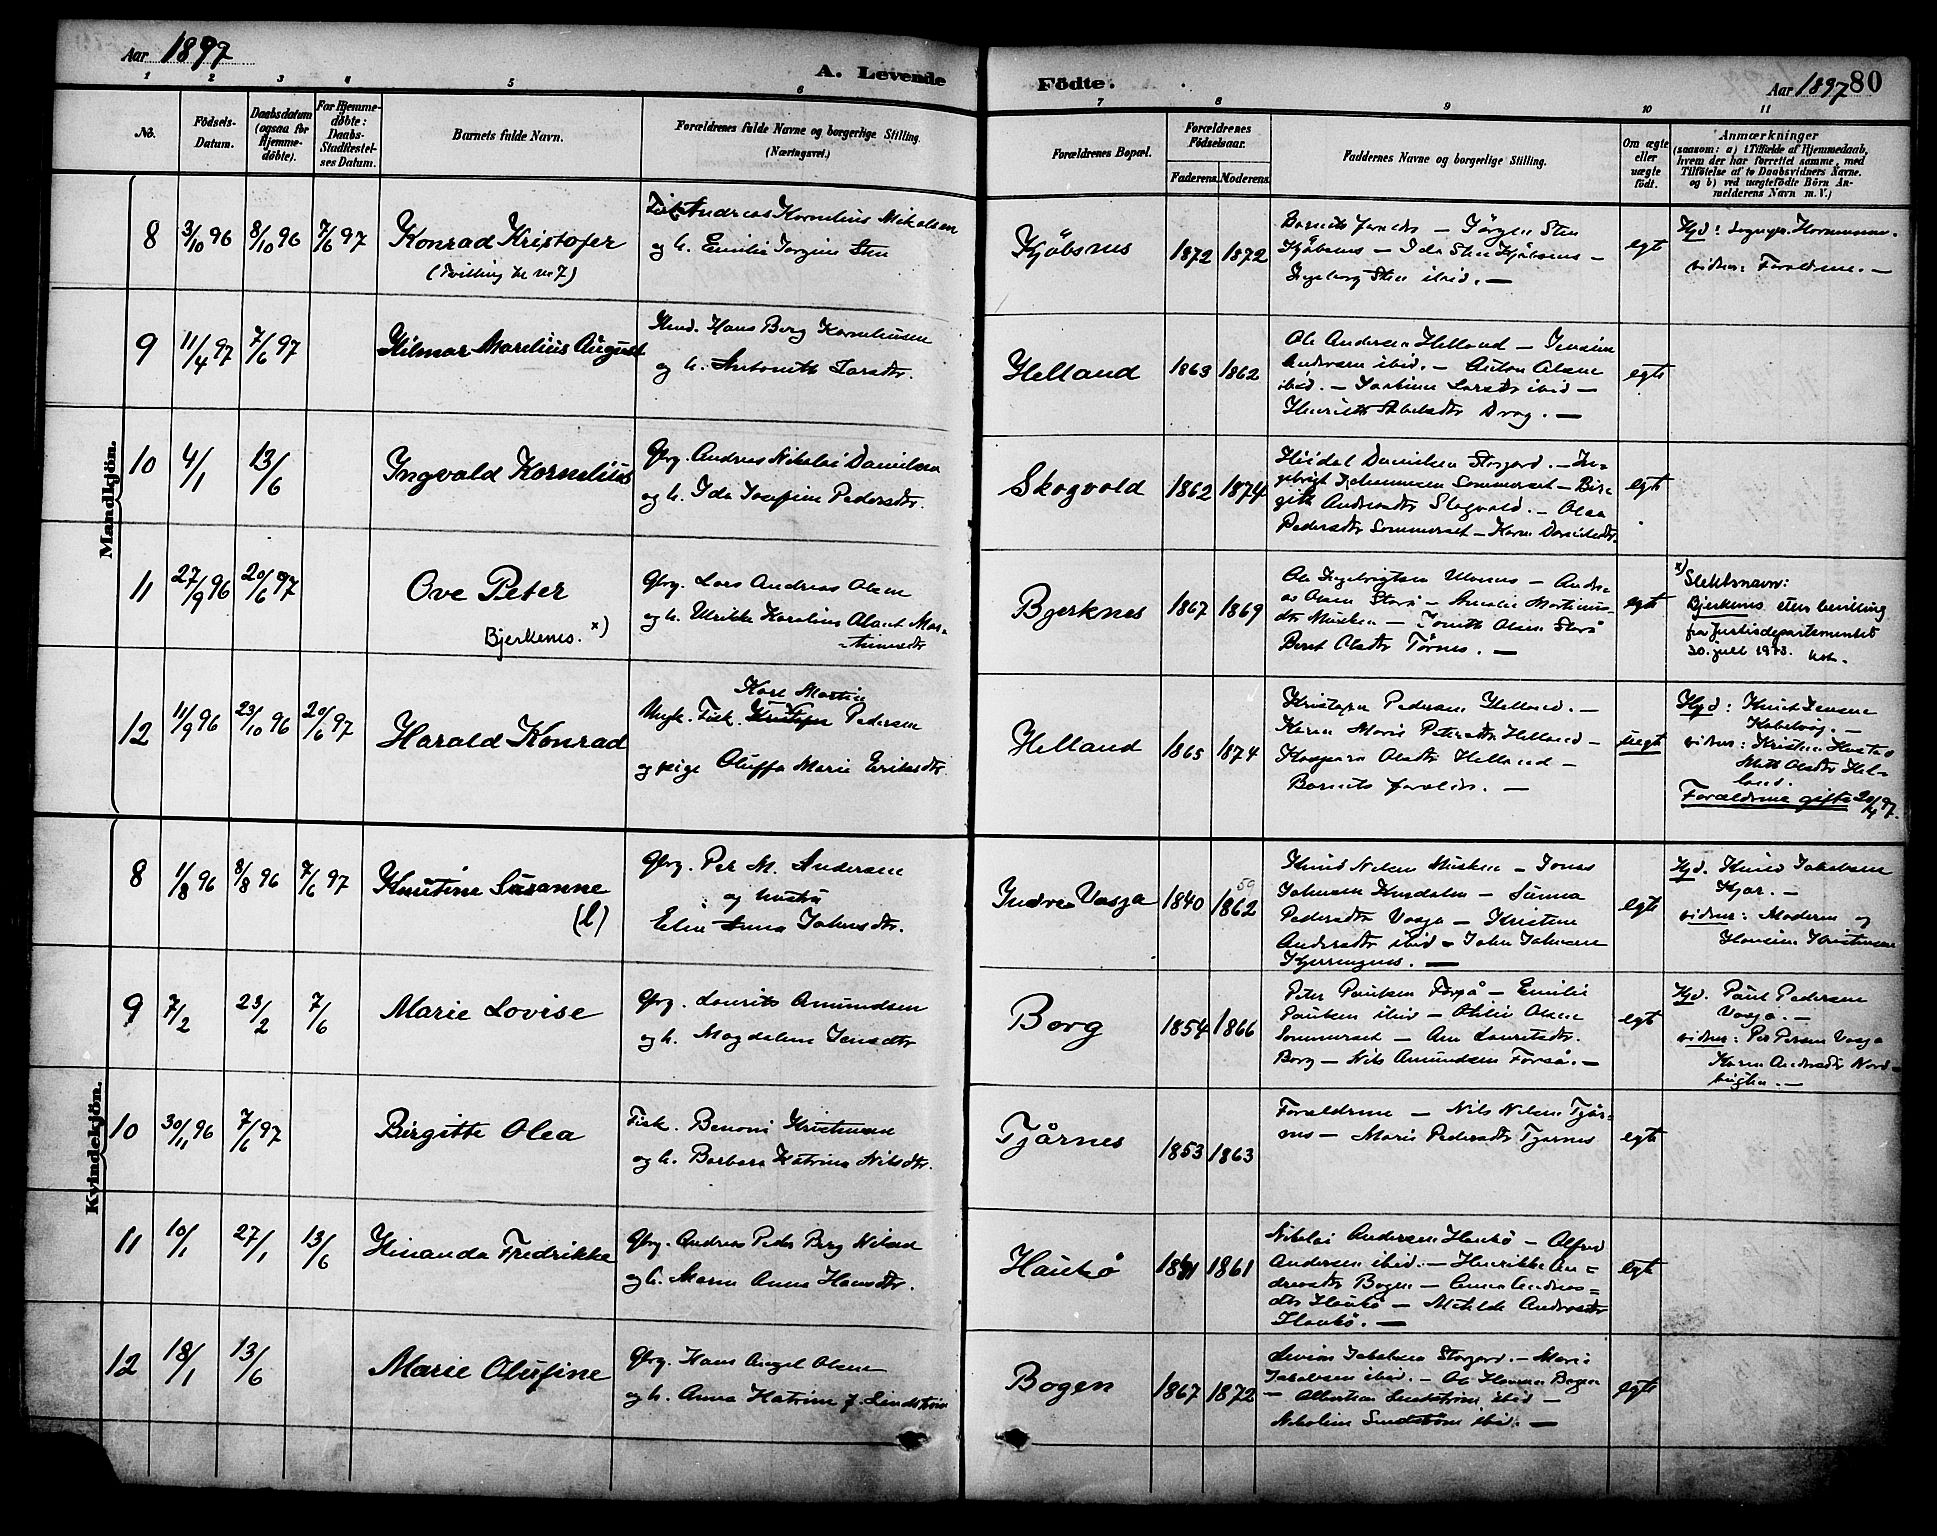 Aar 1897
A. Levende
Födte.
Aar 1897 80
1 2 3 4 5 6 7 8 9 10 11
No.
Födsels-
Datum.
Daabsdatum
(ogsaa for
Hjemme-
døbte).
For Hjemme-
døbte:
Daabs-
Stadfæstel-
ses Datum.
Barnets fulde Navn.
Forældrenes fulde Navne og borgerlige Stilling
(Næringsvei.)
Forældrenes Bopæl.
Forældrenes
Födselsaar.
Faderens. Moderens.
Faddernes Navne og borgerlige Stilling.
Om ægte
eller
uægte
födt.
Anmærkninger
(saasom: a) i Tilfælde af Hjemmedaab,
hvem der har forrettet samme, med
Tilföielse af to Daabsvidners Navne.
og b) ved uægtefödte Börn An-
melderens Navn m. V.)
Mandkjön.
8 3/10 96 8/10 96 7/6 97
Konrad Kristofer
(Tvilling til no 7)
Fisk. Andreas Kornelius Mikalsen
og h. Emilie Jorgine Sten
Kjöbsnes 1872 1872
Barnets foreldre — Jörgen Sten
Kjöbsnes — Ida Sten Kjöbsnes —
Ingeborg Sten ibid. —
egt
Hjd: Sognepr.
vidner: Foraldrene. —
9 11/4 97 7/6 97
Hilmar Marelius August
Hans Berg Kornelius­sen
og h. Antonette Larsdtr.
Helland 1863 1862
Ole Andersen Helland —
Andersen ibid. — Anton Olsen
ibid. — Larsdtr ibid —
Henriette Abelsdtr Drag. —
egt
10 4/1 13/6
Ingvald Kornelius
Gbrg. Andreas Nikolai Danielsen
og h. Ida Josefine Pedersdtr.
Skogvold 1862 1874
Danielsen Storjord. — In-
gebrigt Johannesen Sommerset — Bir-
gitte Andreasdtr Skogvold. — Olea
Pedersdtr Sommerset — Karen Danielsdtr.
egt
11 27/9 96 20/6 97
Ove Peter
Bjerkenes. x)
Gbrg. Lars Andreas Olsen
og h. Ulrikke Karoline Olava Mar-
tinusdtr
Bjerknes 1867 1869
Ole Ingebrigtsen Ulvsnes — Andre-
as Olsen Storå — Amalie Martinus-
dtr — Olsen Storå
Beret Olsdtr Tørnes. —
egt
x) Slektsnavn:
Bjerkenes etter bevilling
fra Justisdepartementet
30. juli 19
12 11/9 96 23/10 96 20/6 97
Harald Konrad
Karl Martin
Ungk. Fisk. Kristofer Pedersen
og pige Oluffa Marie Eriksdtr
Helland 1865 1874
Kristofer Pedersen Helland. —
Karen Marie Petersdtr Helland —
Olsdtr Helland —
Barnets foreldre. —
uegt
Hjd: Knut Jensen
vidner: Kristen
Mette Olsdtr Hel-
land.
Foraldrene gifte 20/4 97.
Kvindekjön.
8 1/8 96 8/8 96 7/6 97
Knutine Susanne
(l)
Gbrg. Per M. Andersen
og hustru
Elen Anna Johnsdtr.
Indre Vasja 1840 1862
59
Knud Nilsen Musken — Jonas
Johnsen — Sunna
Pedersdtr Vasja — Kristine
Andersdtr ibid — John Johnsen
Kjerringnes. —
egt
Hjd. Knud Jakobsen
Kjær. —
vidner: Moderen og
Kristensen
9 7/2 23/2 7/6
Marie Lovise
Gbrg. Laurits Amundsen
og h. Magdalene Jensdtr
Borg 1854 1866
Peter Paulsen Forså — Emilie
Paulsen ibid — Otilie Olsen
Sommerset — Ane Lauritsdtr.
Borg — Nils Amundsen Forså. —
egt
Hjd. Paul Pedersen
Vasja. —
vidner: Per Persen Vasja
Karen Andersdtr Nord-
bugten. —
10 30/11 96 7/6 97
Birgitte Olea
Fisk. Benoni Kristensen
og h. Barbara Katrina Nilsdtr.
Tjårnes 1853 1863
Foraldrene — Nils Nilsen Tjår-
nes — Marie Pedersdtr Tjarnes
egt
11 10/1 27/1 13/6
Hinanda Fredrikke
Gbrg. Andreas Peder Berg Nilsen
og h. Maren Anna Hansdtr.
Haukö 1861
Nikolai Andersen Haukö — Alfred
Andersen ibid. — Henrikke An-
dreasdtr Bogen — Anna Andreas-
dtr Haukö — Matilde Andreasdtr
Haukö. —
egt
12 18/1 13/6
Marie Olufine
Gbrg. Hans Angel Olsen
og h. Anna Katrine f. Lindström
Bogen 1867 1872
Jakobsen Storjord. — Marie
Jakobsen ibid. — Ole Hansen Bogen
— Albertine Lindström ibid —
Nikoline Lindström ibid. —
egt